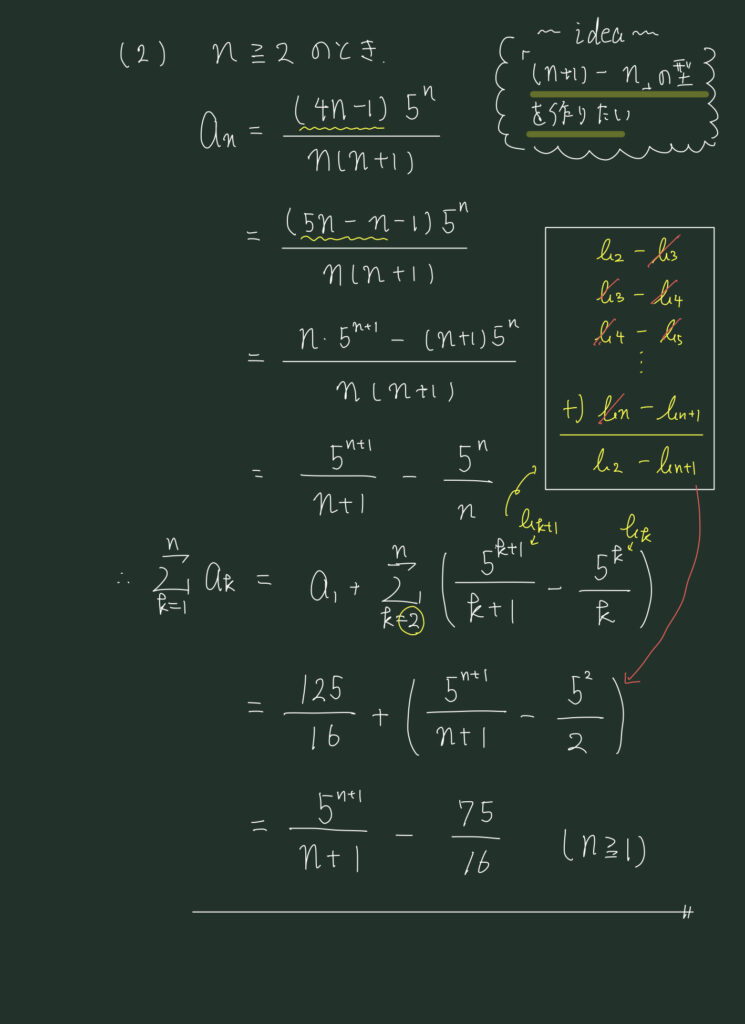 (2) n ≧ 2 のとき.
〜 idea 〜
「(n+1) − n」の型
を作りたい
aₙ = (4n−1) 5ⁿ / n(n+1)
= (5n − n −1) 5ⁿ / n(n+1)
= n・5ⁿ⁺¹ − (n+1) 5ⁿ / n(n+1)
= 5ⁿ⁺¹ / n+1 − 5ⁿ / n
b₂ − b₃
b₃ − b₄
b₄ − b₅
⋮
+) bₙ − bₙ₊₁
b₂ − bₙ₊₁
bₖ₊₁ bₖ
∴ Σₖ₌₁ⁿ aₖ = a₁ + Σₖ₌₂ⁿ ( 5ᵏ⁺¹ / k+1 − 5ᵏ / k )
= 125 / 16 + ( 5ⁿ⁺¹ / n+1 − 5² / 2 )
= 5ⁿ⁺¹ / n+1 − 75 / 16 (n ≧ 1)